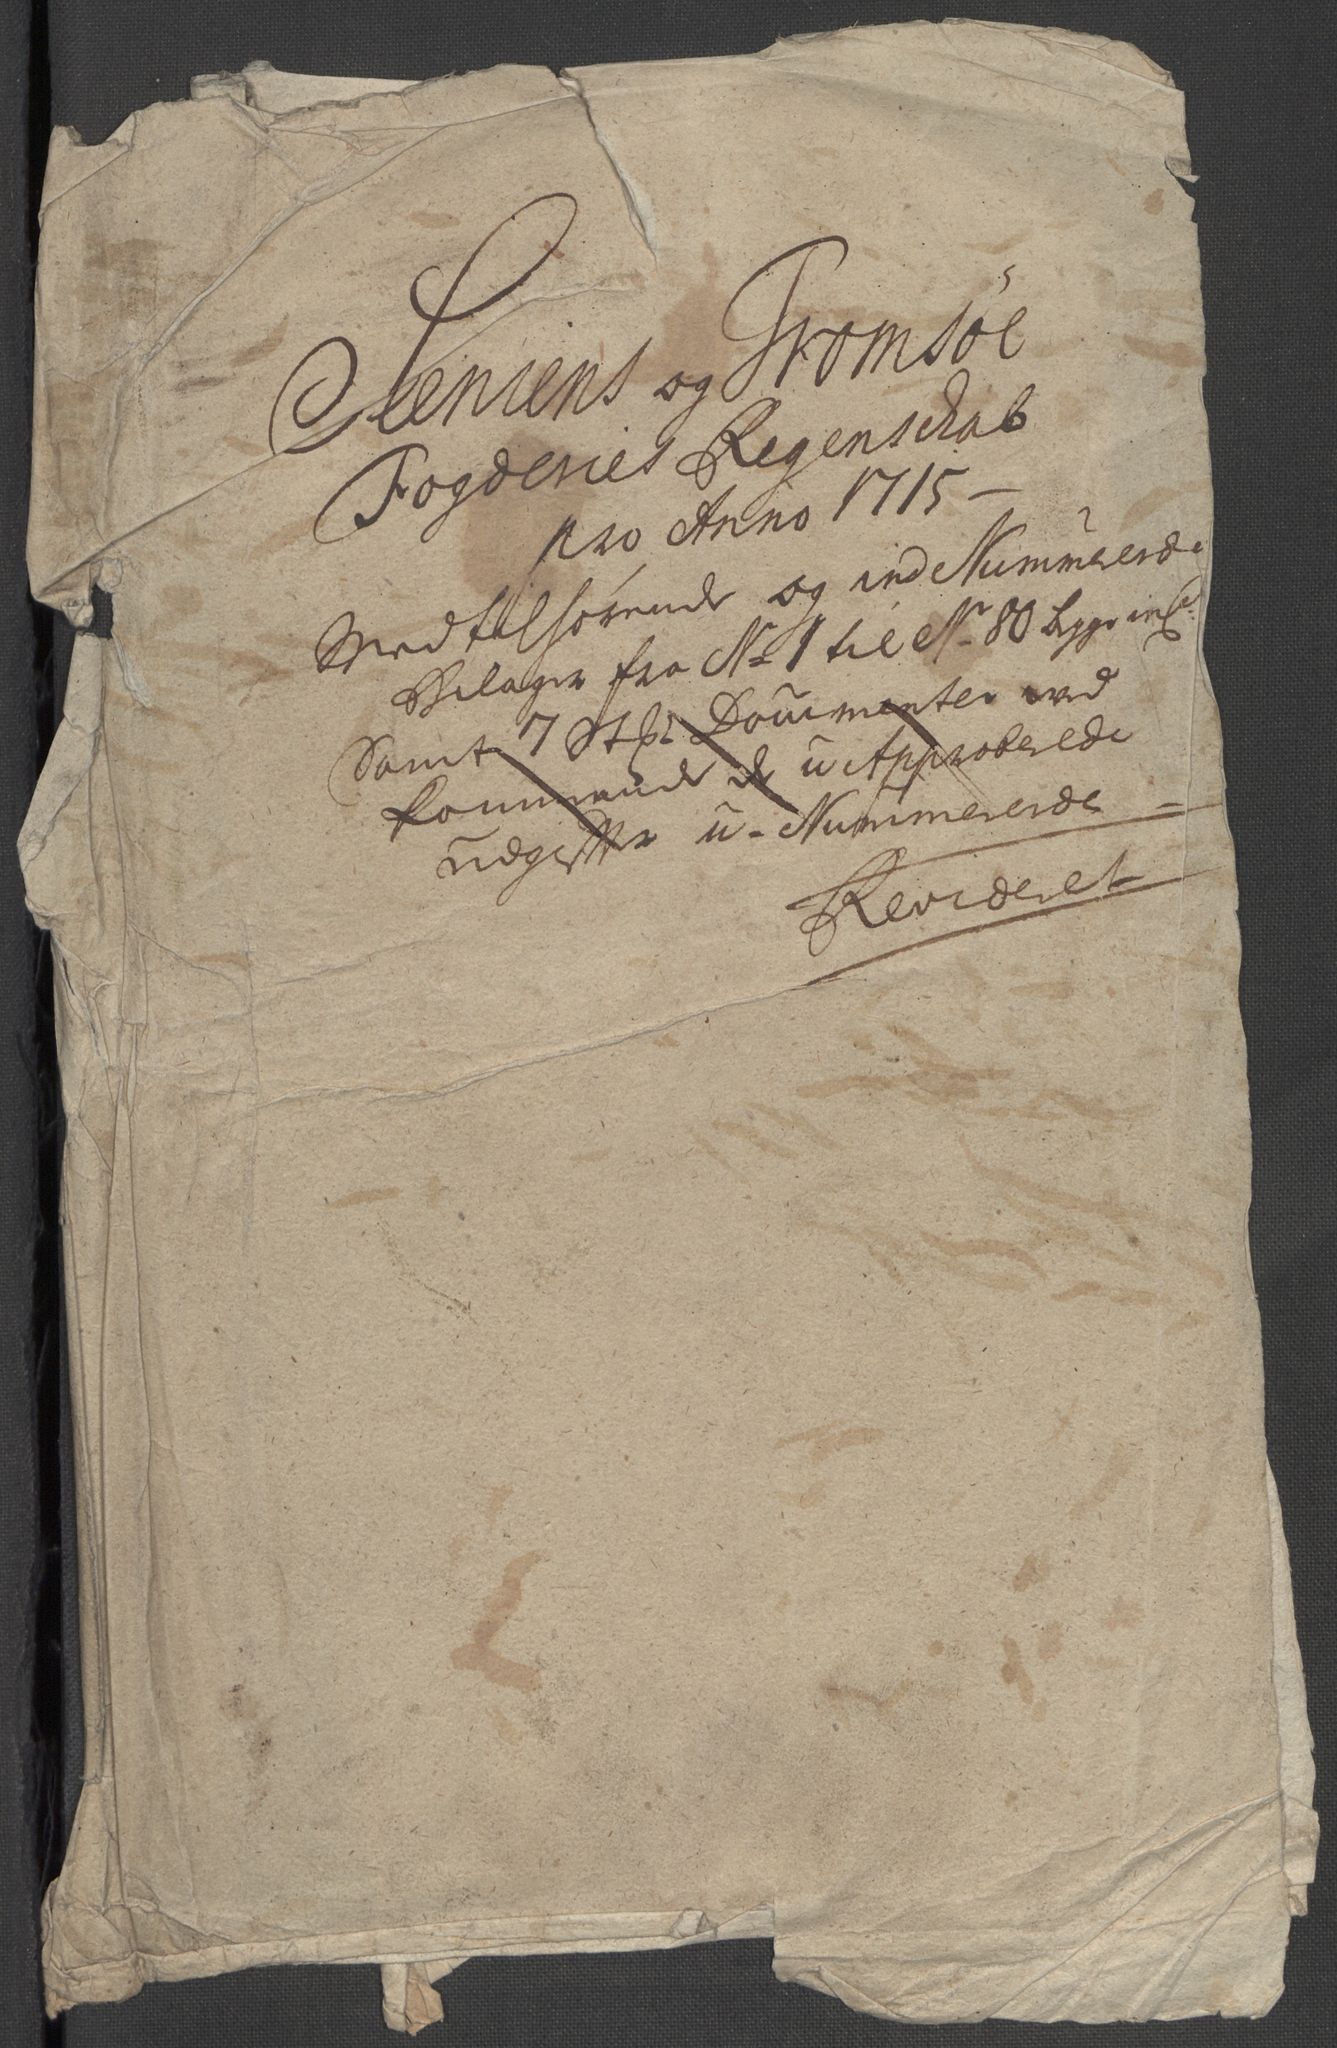 Seniens og Tromsöe
Fogderies Regenschab
pro Anno 1715 -
Med tilhörende og ind Nummererde
Bilager fra No 1 til No 80 begge incl:
Samt 7 St: Documenter ved
kommende de u Approberede
udgifter u-Nummererde
Revideret